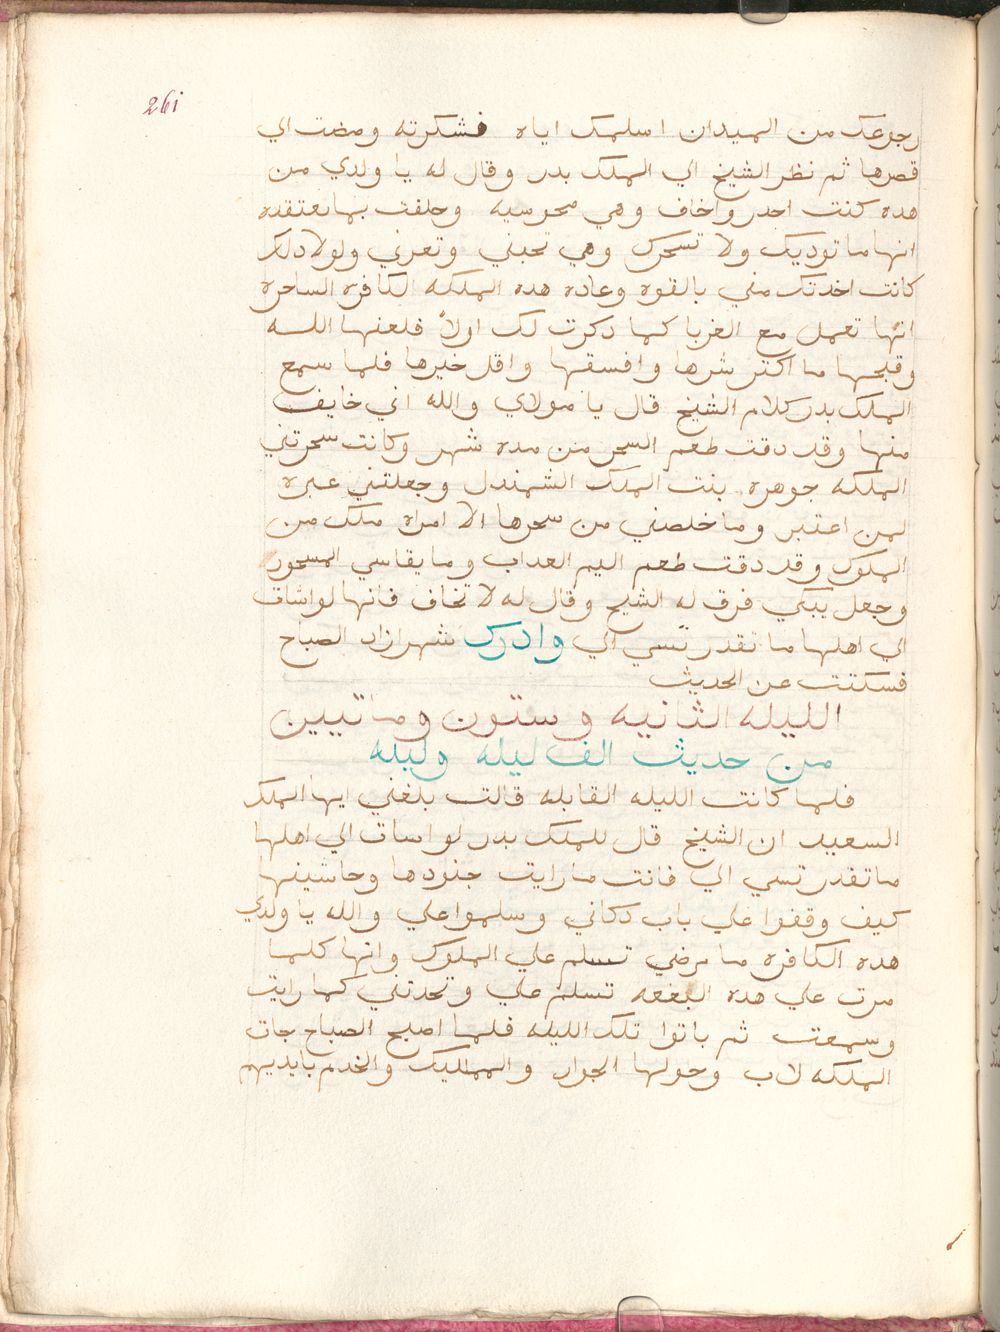 261
رجوعك من الميدان اسلمك اياه فشكرته ومضت الي
قصرها ثم نظر الشيخ الي الملك بدر وقال له يا ولدي من
هده كنت احدر واخاف وهي مجوسيه وحلفت بما تعتقده
انها ما توديك ولا تسحرك وهي تحبني وتعزني ولولا دلك
كانت اخدتك مني بالقوه وعاده هده الملكه الكافره الساحره
انها تعمل مع الغربا كما دكرت لك اولاً فلعنها اللــه
وقبحها ما اكتر شرها وافسقها واقل خيرها فلما سمع
الملك بدر كلام الشيخ قال يا مولاي والله اني خايف
منها وقد دقت طعم السحر من مده شهر وكانت سحرتني
الملكه جوهره بنت الملك الشمندل وجعلتني عبره
لمن اعتبر وما خلصني من سحرها الا امراه ملك من
الملوك وقد دقت طعم اليم العداب وما يقاسي المسحور
وجعل يبكي فرق له الشيخ وقال له لا تخاف فانها لو اشات
الي اهلها ما تقدر تسي الي وادرك شهرازاد الصباح
فسكتت عن الحديث
الليله الثانيه وستون وماتيين
من حديث الف ليله وليله
فلما كانت الليله القابله قالت بلغني ايها الملك
السعيد ان الشيخ قال للملك بدر لو اسات الي اهلها
ما تقدر تسي الي فانت ما رايت جنودها وحاشيتها
كيف وقفوا علي باب دكاني وسلموا علي والله يا ولدي
هده الكافره ما ترضي تسلم علي الملوك وانها كلما
مرت علي هده البقعه تسلم علي وتحدتني كما رايت
وسمعت ثم باتوا تلك الليله فلما اصبح الصباح جات
الملكه لاب وحولها الجوار والمماليك والخدم بايديهم